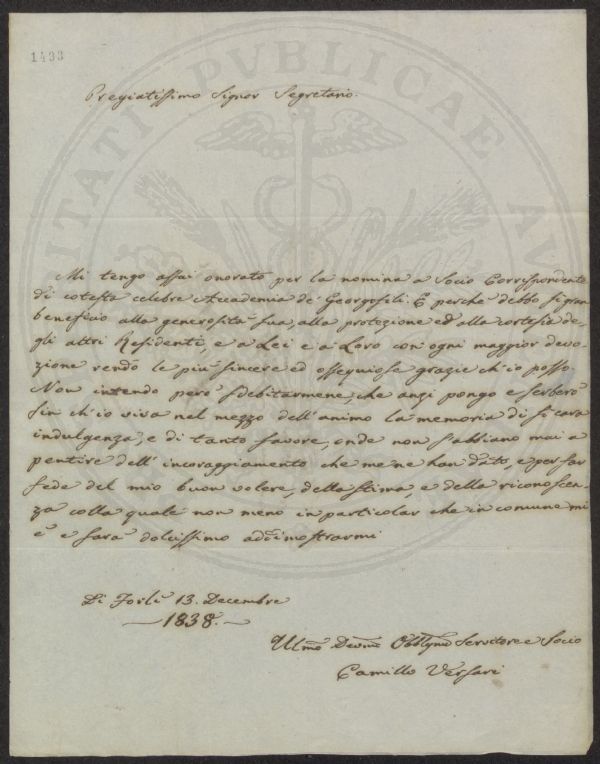 1433
Pregiatissimo Signor Segretario.
Mi tengo assai onorato per la nomina a Socio Corrispondente
di cotesta celebre Accademia de' Georgofili. E perche debbo si gran
beneficio alla generosità sua, alla protezione ed alla cortesia de-
gli altri Residenti, e a Lei e a Loro con ogni maggior devo-
zione rendo le più sincere ed ossequiose grazie ch'io posso.
Non intendo però sdebitarmene, che anzi pongo e serberò
fin ch'io viva nel mezzo dell'animo la memoria di sì cara
indulgenza, e di tanto favore, onde non s'abbiano mai a
pentire dell'incoraggiamento che me ne han dato, e per far
fede del mio buon volere, della stima, e della riconoscen-
za colla quale non meno in particolar che in comune mi
è e sarà dolcissimo addimostrarmi
Di Forlì 13. Decembre
1838.
Ulmo Devmo Obblgmo Servitore e Socio
Camillo Versari
PVBLICAE